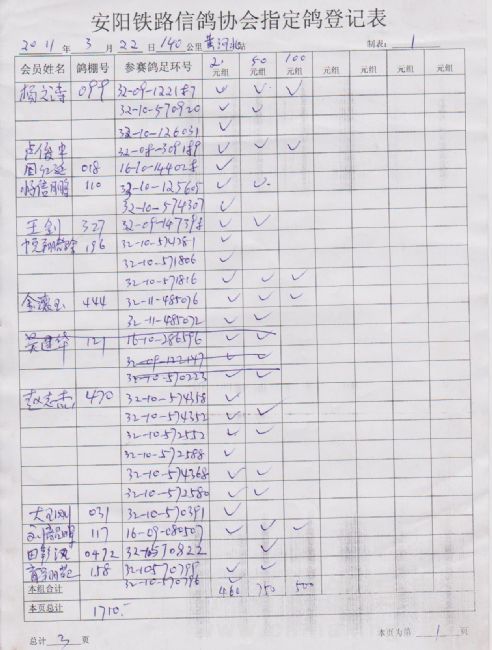 安阳铁路信鸽协会指定鸽登记表
2011年 3月 22日 140公里 黄河北站 制表: 1
会员姓名 鸽棚号 参赛鸽足环号 20元组 50元组 100元组 元组 元组 元组 元组
099 32-09-122187 ✓ ✓ ✓
32-10-570920 ✓ ✓
32-10-126031 ✓
卢俊忠 ✓ ✓ ✓
018 ✓
杨信鹏 110 32-10-125605 ✓ ✓
32-10-574307 ✓
王剑 327 ✓ ✓
196 32-10-574281 ✓
32-10-571806 ✓
32-10-571816 ✓ ✓ ✓
444 32-11-485076 ✓ ✓ ✓
32-11-485072 ✓ ✓
吴建华 121 16-10-286596 ✓ ✓
32-09-122147 ✓ ✓
32-10-570223 ✓ ✓
赵志杰 470 32-10-574358 ✓
32-10-574352 ✓ ✓
32-10-572552 ✓ ✓
32-10-572588 ✓
32-10-574368 ✓ ✓
32-10-572580 ✓ ✓
031 32-10-570391 ✓
117 16-09-080507 ✓ ✓ ✓
0472 32-10570822 ✓
158 32-10570799 ✓ ✓
32-10-570796 ✓
本组合计 460 750 500
本页总计 1710.-
总计 3 页 本页为第 1 页